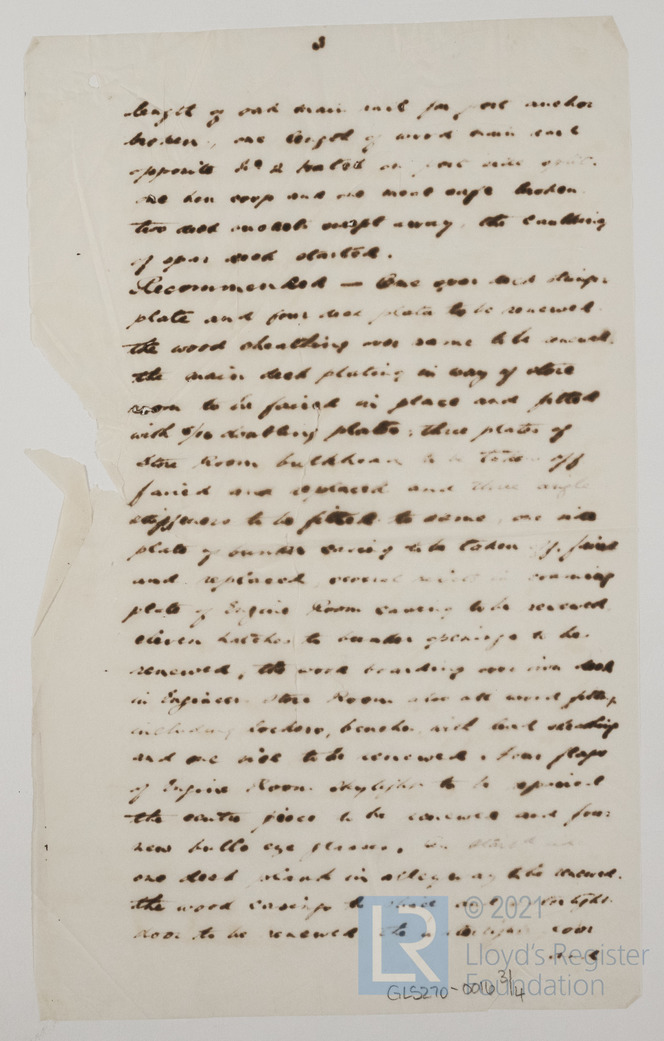 3
length of oak main rail for port anchor
broken, one length of wood main rail
opposite No 2 hatch on port side
one hen coop and one meat safe broken
two deck swept away, the caulking
of spar deck started.
Recommended — One over deck stringer
plate and four deck plates to be renewed
the wood sheathing over same to be renewed.
the main deck plating in way of store
room to be faired in place and fitted
with doubling plates, three plates of
Store Room bulkhead to be taken off
faired and replaced and three angle
stiffeners to be fitted to same, one side
plate of bunker casing to be taken off, faired
and replaced several rivets in coaming
plate of Engine Room casing to be renewed
eleven hatches to bunker openings to be
renewed, the wood boarding over iron deck
in Engineers Store Room also all wood fittings
including lockers, benches, with lead sheathing
and one side to be renewed. Four flaps
of Engine Room skylight to be repaired
the centre piece to be renewed and four
new bulls eye glasses,
one deck stand in alleyway to be renewed.
the wood casings to
door to be renewed the door
and
GLS270-0016 3/4
LR
© 2021
Lloyd's Register
Foundation